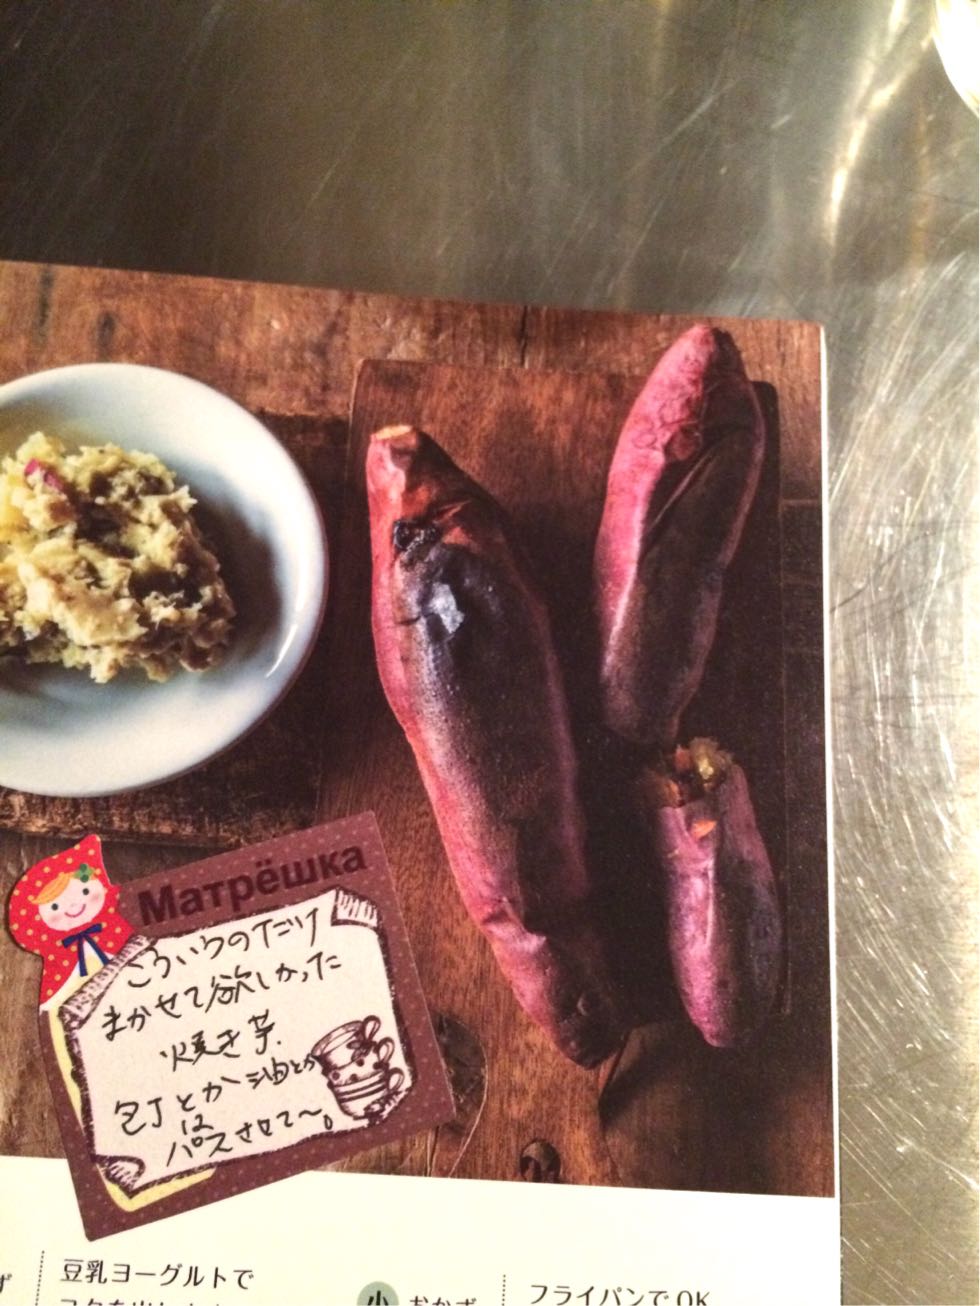 Матрёшка
こういうのだけ
まかせて欲しかった
焼き芋.
包丁とか油とか
は
パスさせて〜。
豆乳ヨーグルトで
小 おかず
フライパンでOK